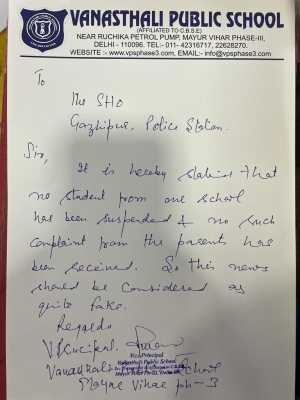 VANASTHALI PUBLIC SCHOOL
(AFFILIATED TO C.B.S.E)
NEAR RUCHIKA PETROL PUMP, MAYUR VIHAR PHASE-III,
DELHI - 110096. TEL:- 011- 42316717, 22628270.
WEBSITE :- www.vpsphase3.com, EMAIL:- info@vpsphase3.com
To
The SHO
Gazhipur, Police Station.
Sir,
It is hereby stated that
no student from our school
has been suspended & no such
complaint from the parents has
been received. So this news
should be considered as
quite fake.
Regards
V. Principal
Vice Principal
Vanasthali Public School
Vanasthali School
Mayur Vihar ph-3